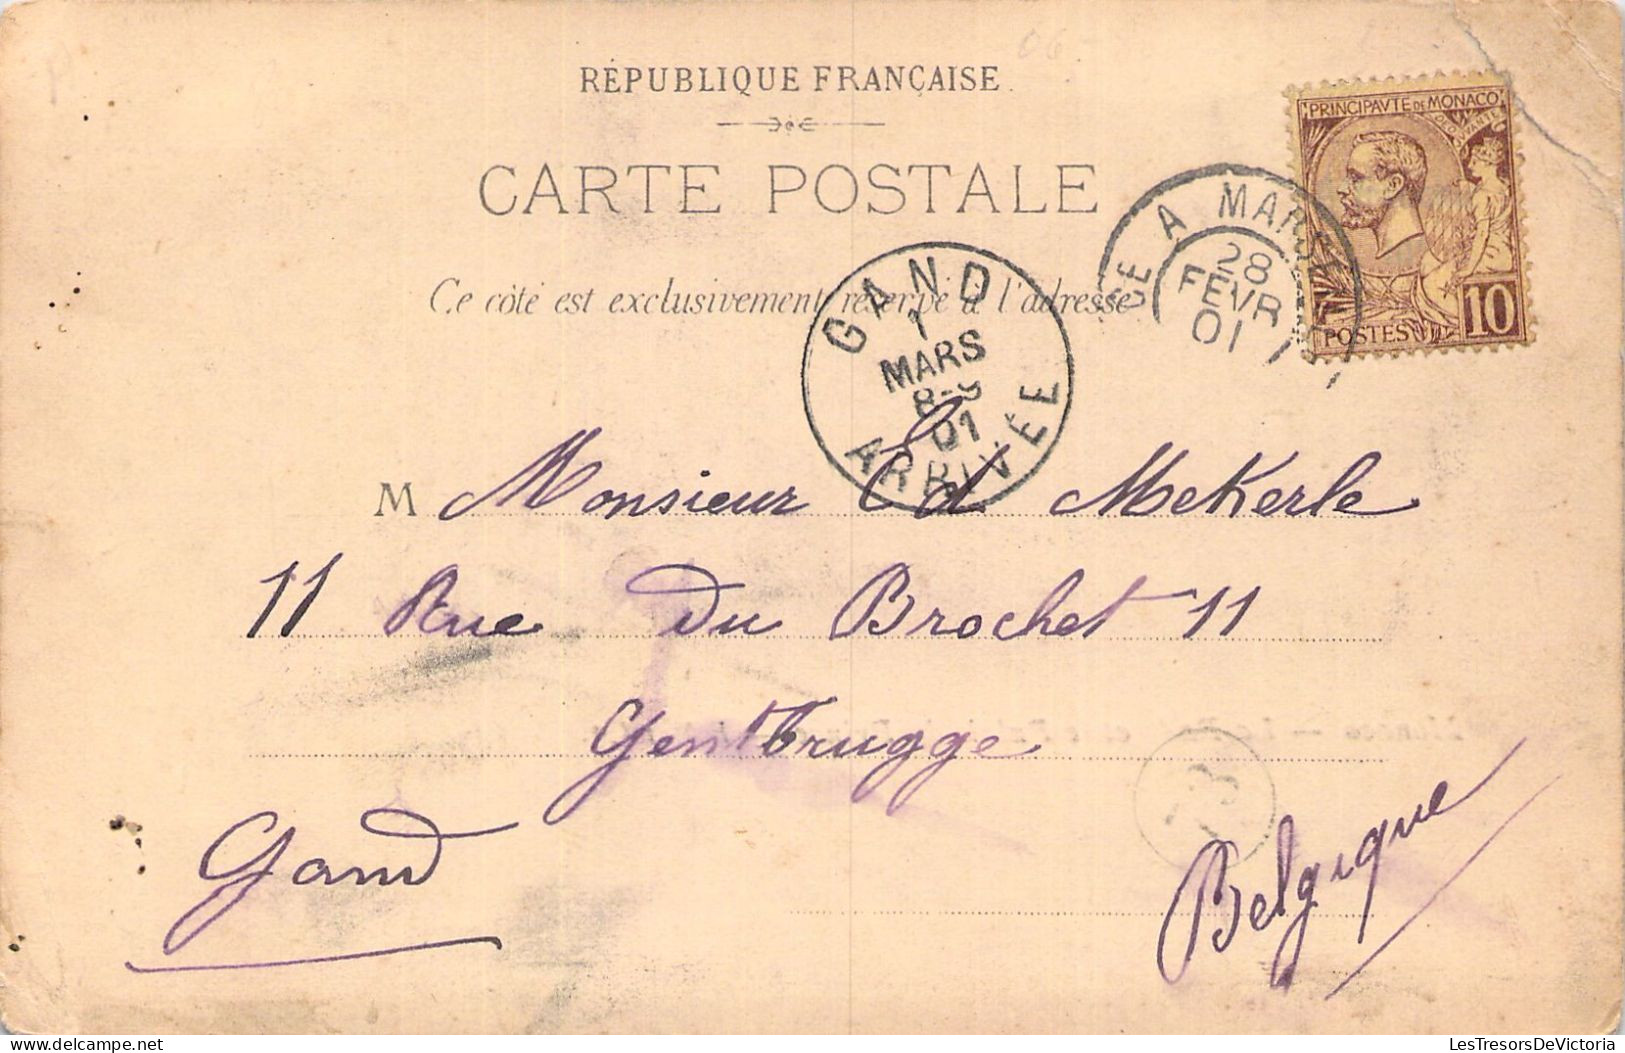 RÉPUBLIQUE FRANÇAISE
CARTE POSTALE
Ce côté est exclusivement réservé à l'adresse
PRINCIPAVTE DE MONACO
POSTES 10
CE A MARS
28
FEVR
01
GAND
1
MARS
8-9
01
ARRIVÉE
M Monsieur Ed Mekerle
11 Rue du Brochet 11
Gentbrugge
Gand
Belgique
delcampe.net
LesTresorsDeVictoria